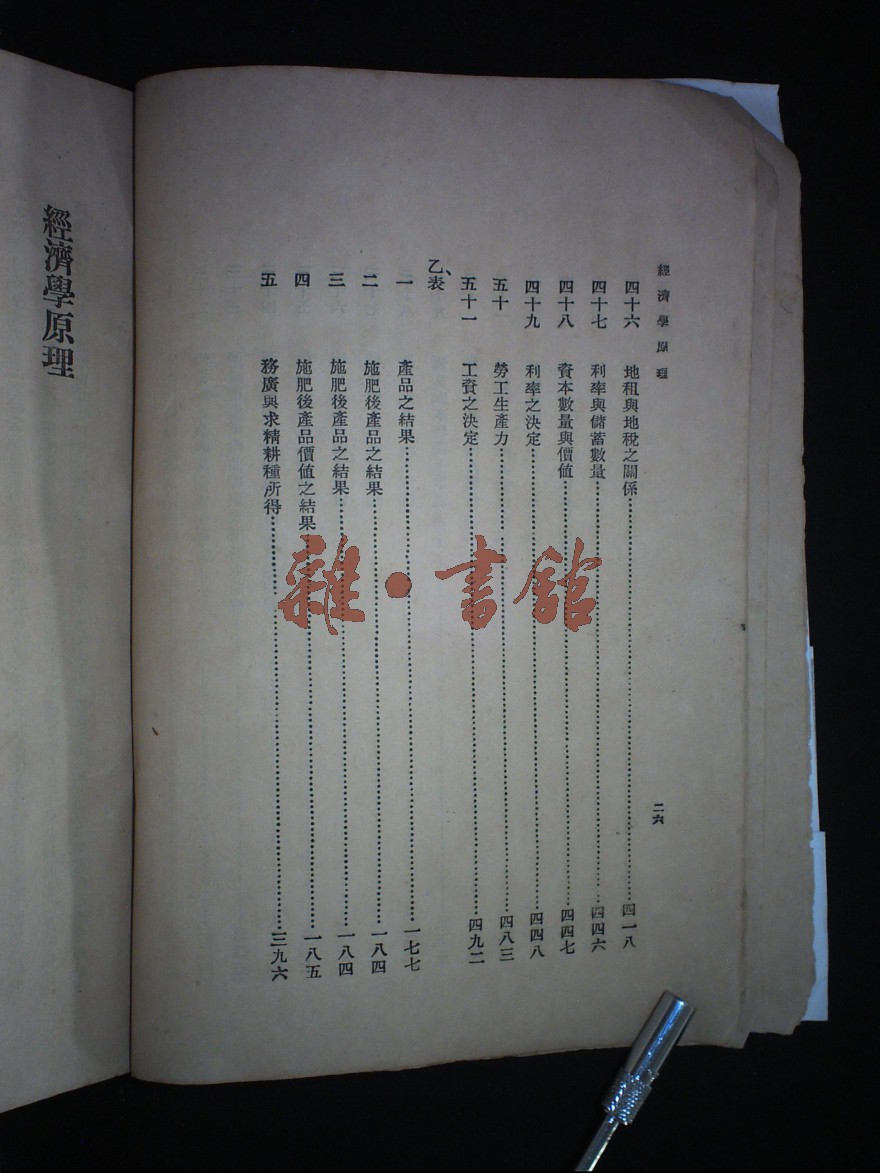 經濟學原理
二六
四十六 地租與地稅之關係……四一八
四十七 利率與儲蓄數量……四四六
四十八 資本數量與價值……四四七
四十九 利率之決定……四四八
五十 勞工生產力……四八三
五十一 工資之決定……四九二
乙、表
一 產品之結果……一七七
二 施肥後產品之結果……一八四
三 施肥後產品之結果……一八四
四 施肥後產品價值之結果……一八五
五 務廣與求精耕種所得……三九六
經濟學原理
雜·書館